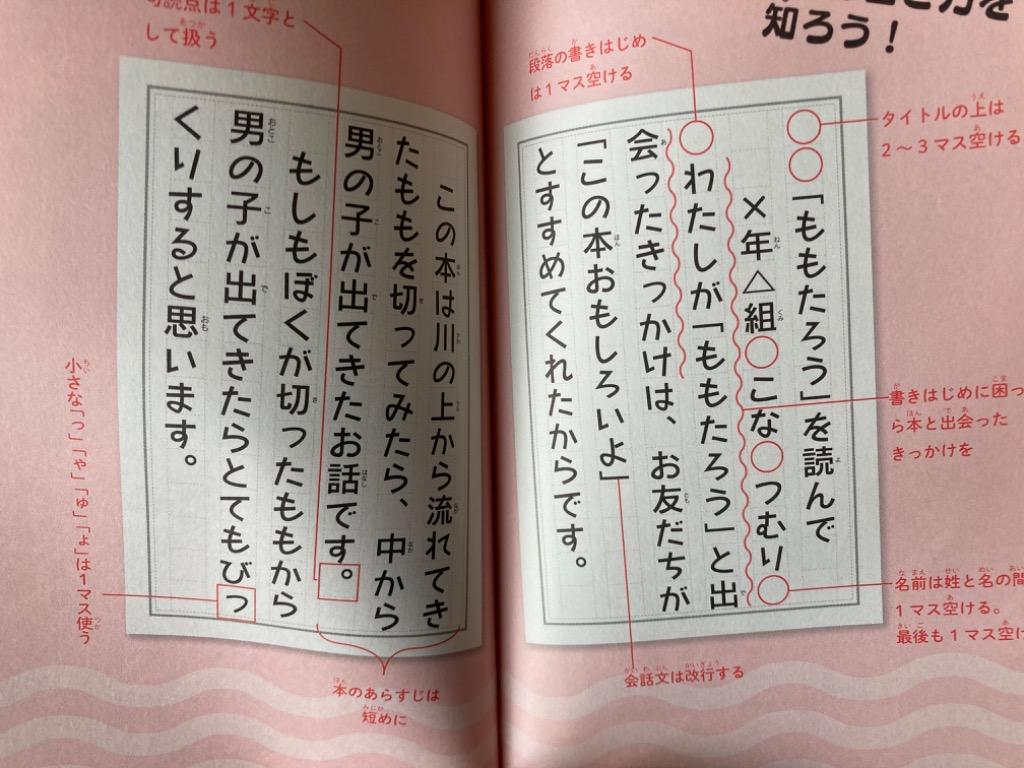 知ろう！
タイトルの上は
2〜3マス空ける
○○「ももたろう」を読んで
×年△組○こな○つむり○
○わたしが「ももたろう」と出
会ったきっかけは、お友だちが
「この本おもしろいよ」
とすすめてくれたからです。
段落の書きはじめ
は1マス空ける
書きはじめに困っ
ら本と出会った
きっかけを
名前は姓と名の間
1マス空ける。
最後も1マス空け
会話文は改行する
句読点は1文字と
して扱う
この本は川の上から流れてき
たももを切ってみたら、中から
男の子が出てきたお話です。
もしもぼくが切ったももから
男の子が出てきたらとてもびっ
くりすると思います。
本のあらすじは
短めに
小さな「っ」「ゃ」「ゅ」「ょ」は1マス使う